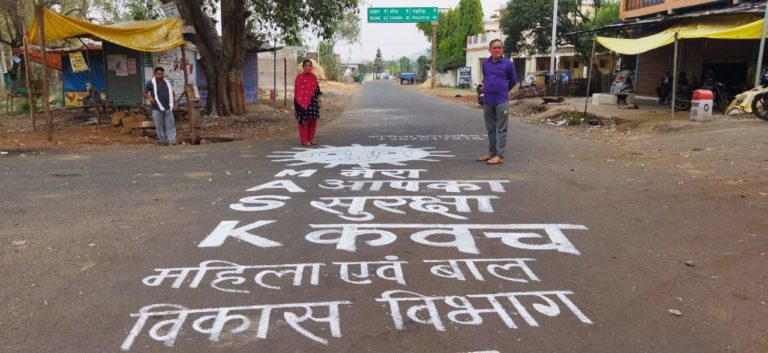 M मेरा
A आपका
S सुरक्षा
K कवच
महिला एवं बाल
विकास विभाग